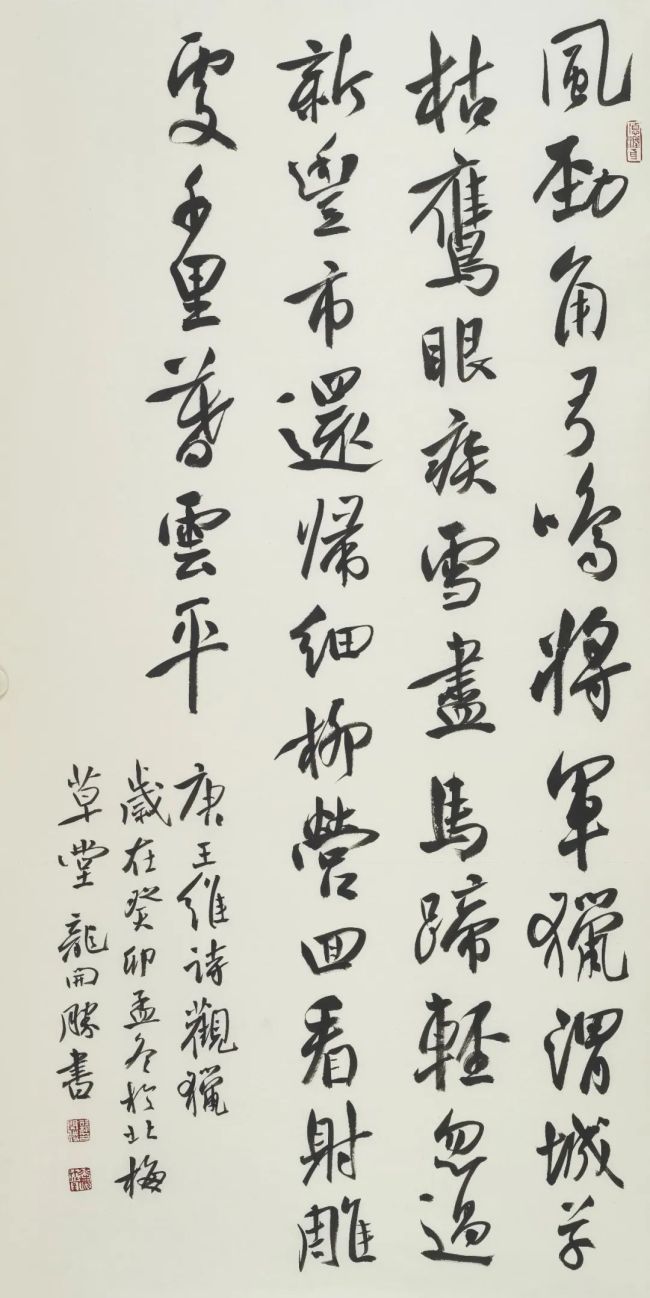 風勁角弓鳴將軍獵渭城草
枯鷹眼疾雪盡馬蹄輕忽過
新豐市還歸細柳營回看射雕
處千里暮雲平
唐王維詩觀獵
歲在癸卯孟冬於北梅
草堂龍開勝書